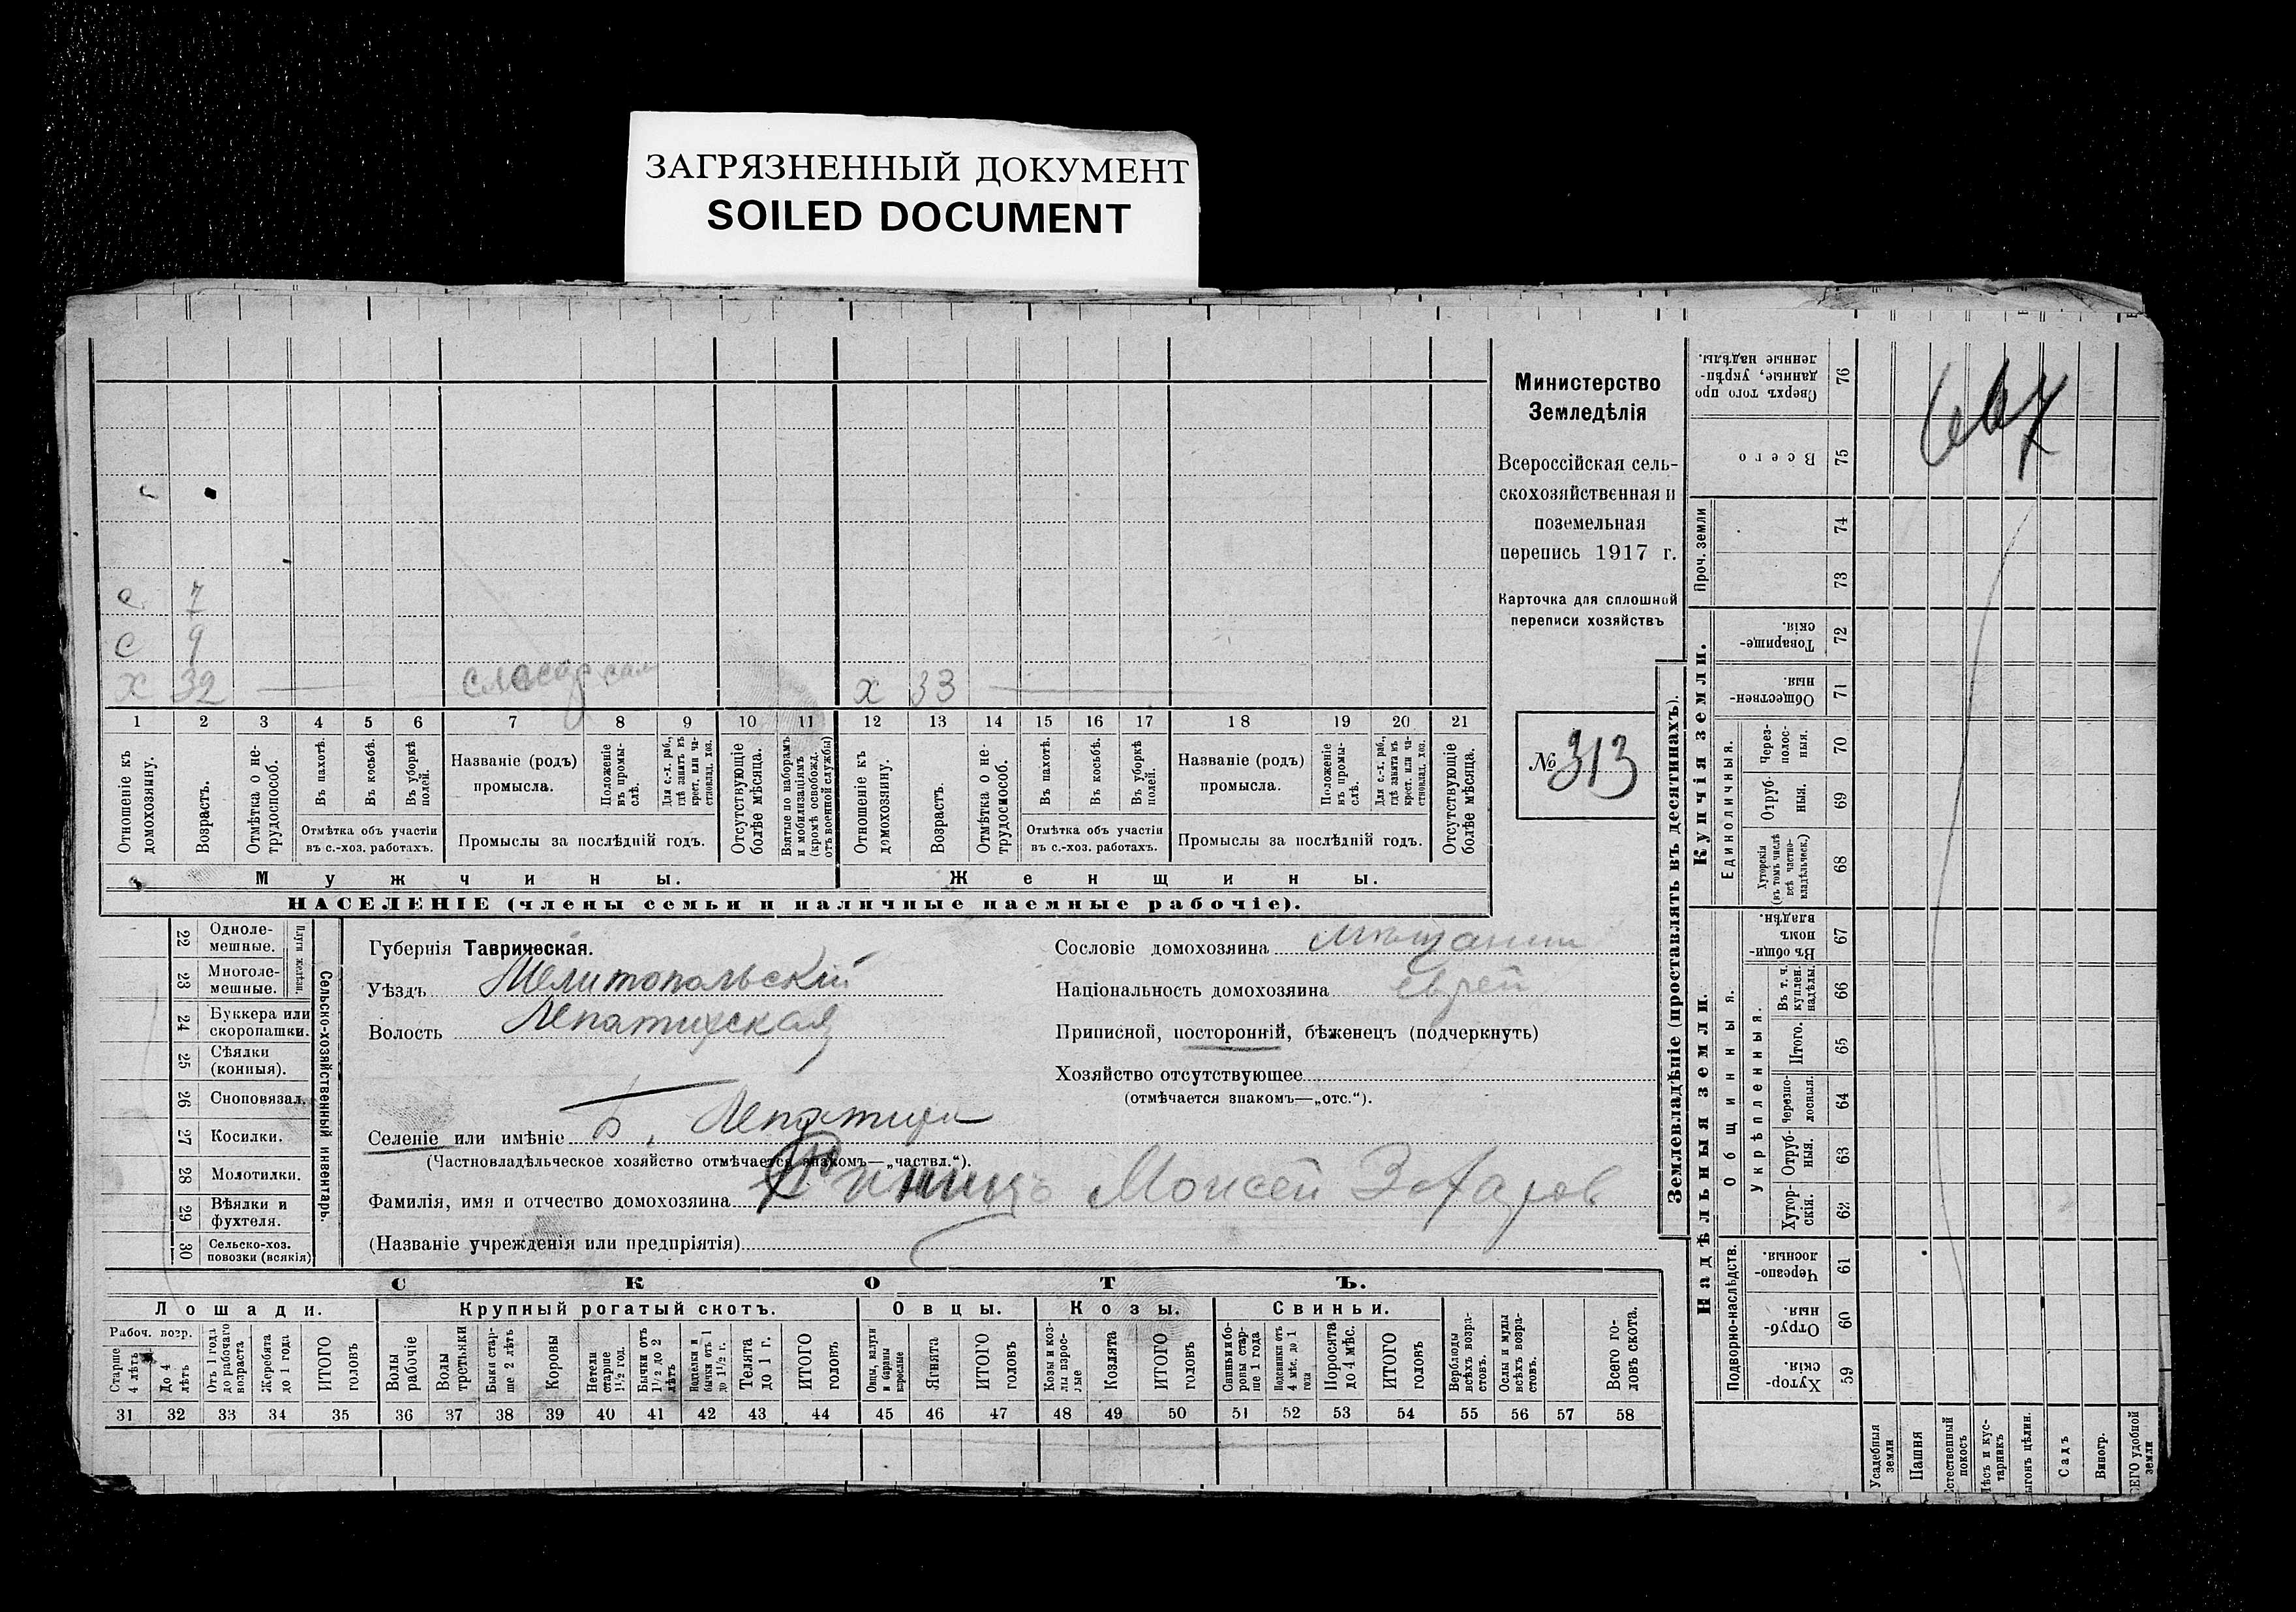 ЗАГРЯЗНЕННЫЙ ДОКУМЕНТ
SOILED DOCUMENT
Министерство
Земледѣлія
Всероссійская сель-
скохозяйственная и
поземельная
перепись 1917 г.
Карточка для сплошной
переписи хозяйствъ
№ 313
667
с 7
с 9
х 32 — слесар сам
х 33 —
1 2 3 4 5 6 7 8 9 10 11 12 13 14 15 16 17 18 19 20 21
Отношеніе къ домохозяину.
Возрастъ.
Отмѣтка о не-трудоспособ.
Въ пахотѣ.
Въ косьбѣ.
Въ уборкѣ полей.
Отмѣтка объ участіи
въ с.-хоз. работахъ.
Названіе (родъ)
промысла.
Положеніе въ промы-слѣ.
Для с.-х. раб., гдѣ занятъ въ крест. или ча-стновлад. хоз.
Промыслы за послѣдній годъ.
Отсутствующіе болѣе мѣсяца.
Взятые по наборамъ и мобилизаціямъ (кромѣ освобожд. отъ военной службы)
Отношеніе къ домохозяину.
Возрастъ.
Отмѣтка о не-трудоспособ.
Въ пахотѣ.
Въ косьбѣ.
Въ уборкѣ полей.
Отмѣтка объ участіи
въ с.-хоз. работахъ.
Названіе (родъ)
промысла.
Положеніе въ промы-слѣ.
Для с.-х. раб., гдѣ занята въ крест. или ча-стновлад. хоз.
Промыслы за послѣдній годъ.
Отсутствующіе болѣе мѣсяца.
Мужчины.
Женщины.
НАСЕЛЕНІЕ (члены семьи и наличные наемные рабочіе).
22 Одноле-мешные.
23 Многоле-мешные.
Плуги желѣзн.
24 Буккера или скоропашки.
25 Сѣялки (конныя).
26 Сноповязал.
27 Косилки.
28 Молотилки.
29 Вѣялки и фухтеля.
30 Сельско-хоз. повозки (всякія)
Сельско-хозяйственный инвентарь.
Губернія Таврическая.
Уѣздъ Мелитопольскій
Волость Лепатихская
Селеніе или имѣніе Б. Лепатиха
(Частновладѣльческое хозяйство отмѣчается знакомъ—„частвл.“).
Фамилія, имя и отчество домохозяина Моисей Захаров
(Названіе учрежденія или предпріятія)
Сословіе домохозяина мѣщанин
Національность домохозяина еврей
Приписной, посторонній, бѣженецъ (подчеркнуть)
Хозяйство отсутствующее
(отмѣчается знакомъ—„отс.“).
СКОТЪ.
Лошади.
Крупный рогатый скотъ.
Овцы.
Козы.
Свиньи.
Рабоч. возр.
Старше 4 лѣтъ
До 4 лѣтъ
Отъ 1 года до рабочаго возраста
Жеребята до 1 года
ИТОГО головъ
Волы рабочіе
Волы третьяки
Быки стар-ше 2 лѣтъ
Коровы
Нетели старше 1 1/2 год.
Бычки отъ 1 1/2 до 2 лѣтъ
бычки отъ 1 до 1 1/2 г.
Телята до 1 г.
ИТОГО головъ
Овцы, валухи и бараны взрослые
Ягнята
ИТОГО головъ
Козы и коз-лы взрос-лые
Козлята
ИТОГО головъ
Свиньи и бо-ровы стар-ше 1 года
Подсвинки отъ 4 мѣс. до 1 года
Поросята до 4 мѣс.
ИТОГО головъ
Верблюды всѣхъ возра-стовъ.
Ослы и мулы всѣхъ возра-стовъ.
Всего го-ловъ скота.
31 32 33 34 35 36 37 38 39 40 41 42 43 44 45 46 47 48 49 50 51 52 53 54 55 56 57 58
Землевладѣніе (проставлять въ десятинахъ).
Надѣльныя земли.
Купчія земли.
Проч. земли
Подворно-наслѣдств.
Общинныя.
Укрѣпленныя.
Единоличныя.
Сверхъ того про-данные, укрѣп-ленные надѣлы. 76
Всего 75
74
73
Товарище-скія. 72
Обществен-ныя. 71
Через-полос-ныя. 70
Отруб-ныя. 69
Хуторскія (въ томъ числѣ всѣ частно-владѣльческ.) 68
Въ общин-номъ владѣн. 67
Въ т. ч. куплен. надѣлы. 66
Итого. 65
Черезпо-лосныя. 64
Отруб-ныя. 63
Хутор-скія. 62
Черезпо-лосныя. 61
Отруб-ныя. 60
Хутор-скія. 59
Усадебныя земли
Пашня
Естественный покосъ
Лѣсъ и кус-тарникъ
Выгонъ цѣлин.
Садъ
Виногр.
ВСЕГО удобной земли